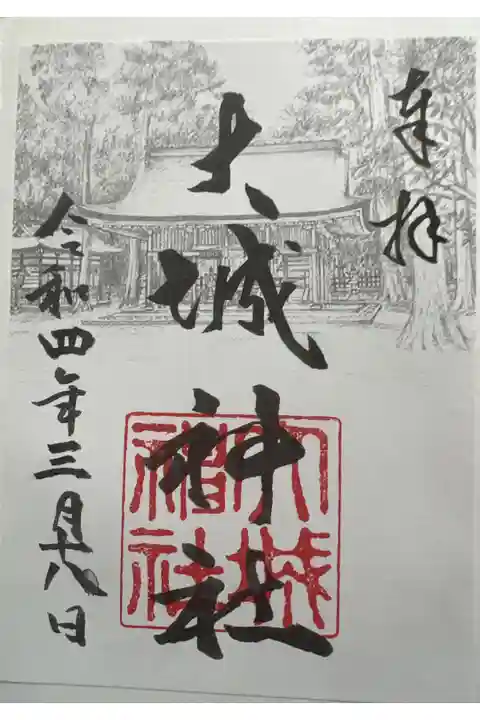 奉拝
大城神社
令和四年三月廿八日
大城
神社